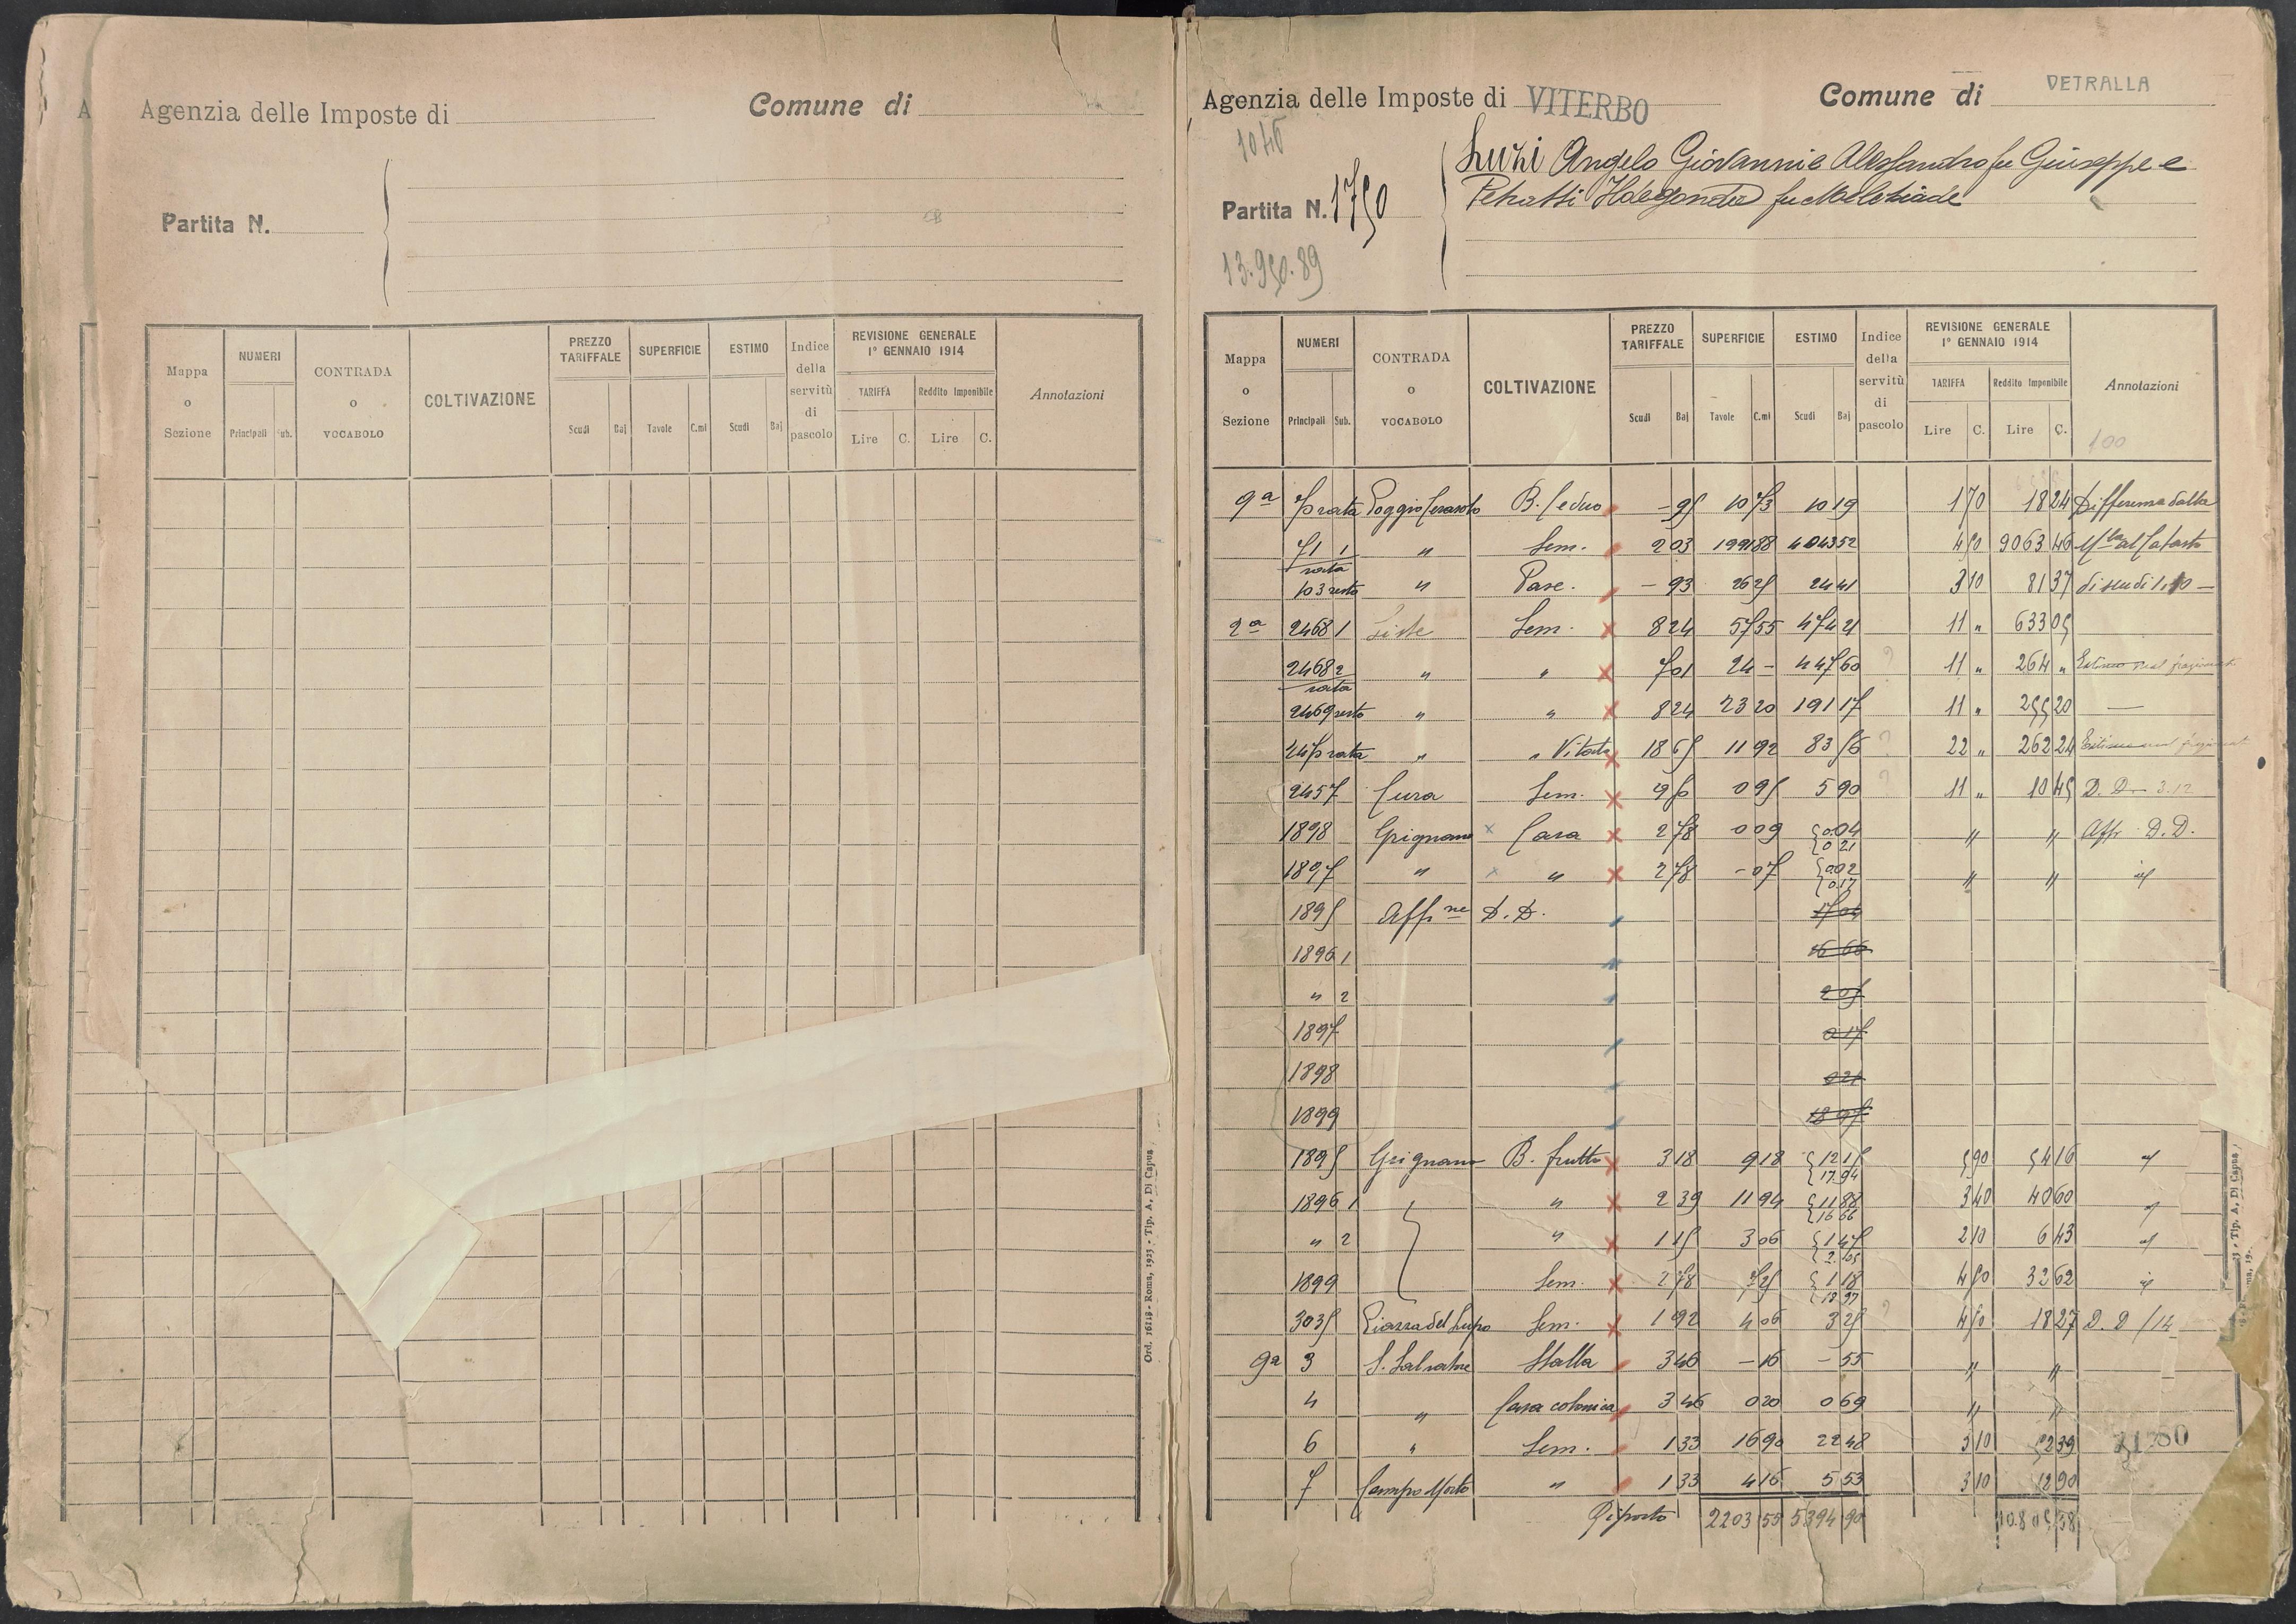 A
Agenzia delle Imposte di
Comune di
Partita N.
Mappa o Sezione
NUMERI
Principali Sub.
CONTRADA o VOCABOLO
COLTIVAZIONE
PREZZO TARIFFALE
Scudi Baj
SUPERFICIE
Tavole C.mi
ESTIMO
Scudi Baj
Indice della servitù di pascolo
REVISIONE GENERALE
1° GENNAIO 1914
TARIFFA
Lire C.
Reddito Imponibile
Lire C.
Annotazioni
Ord. 16248 - Roma, 1925 - Tip. A. Di Capua
Agenzia delle Imposte di VITERBO
Comune di VETRALLA
1046
Partita N. 1750
13.950.89
Luzi Angelo Giovanni e Alessandro fu Giuseppe e
Petratti Ildegonda fu Melchiade
Mappa o Sezione
NUMERI
Principali Sub.
CONTRADA o VOCABOLO
COLTIVAZIONE
PREZZO TARIFFALE
Scudi Baj
SUPERFICIE
Tavole C.mi
ESTIMO
Scudi Baj
Indice della servitù di pascolo
REVISIONE GENERALE
1° GENNAIO 1914
TARIFFA
Lire C.
Reddito Imponibile
Lire C.
Annotazioni
100
9a 7 rata Poggio Cerasolo B. Ceduo - 95 10 73 10 19 1 70 18 24 Differenza dalla
71 1 rata " Sem. 2 03 1991 88 4043 52 4 50 9063 46 al Catasto
103 resto " Pasc. - 93 26 25 24 41 3 10 81 37 di scudi 1.10 —
2a 2468 1 Liste Sem. 8 24 57 55 474 21 11 " 633 05
2468 2 rata " " 7 01 24 - 447 60 ? 11 " 264 "
2469 resto " " 8 24 23 20 191 17 11 " 255 20 —
447 rata " " Vitato 18 65 11 92 83 56 ? 22 " 262 24
2457 Cura Sem. 9 56 0 95 5 90 ? 11 " 10 45 D. D. 3.12
1898 Grignano x Casa 2 78 0 09 0.04 0 21 " " Aff. D.D.
1897 " x " 2 78 - 07 0.02 0.17 " " id
1895 Aff.ne D. D. 17 04
1896 1 16 66
" 2 2 05
1897 0 17
1898 0 21
1899 18 97
1895 Grignano B. frutto 3 18 9 18 12 15 17.94 5 90 54 16 id
1896 1 " 2 39 11 94 11 88 16 66 3 40 40 60 id
" 2 " 1 15 3 06 1 47 2.05 2 10 6 43 id
1899 Sem. 2 78 7 25 1 18 18 97 4 50 32 62 id
3035 Piazza del Lupo Sem. 1 92 4 06 3 25 ? 4 50 18 27 D. D /14
9a 3 S. Salvatore Stalla 3 46 - 16 - 55 " "
4 " Casa colonica 3 46 0 20 0 69 " "
6 " Sem. 1 33 16 90 22 48 3 10 52 39
7 Campo Morto " 1 33 4 16 5 53 3 10 12 90
Riporto 2203 55 5394 90 10.805 58